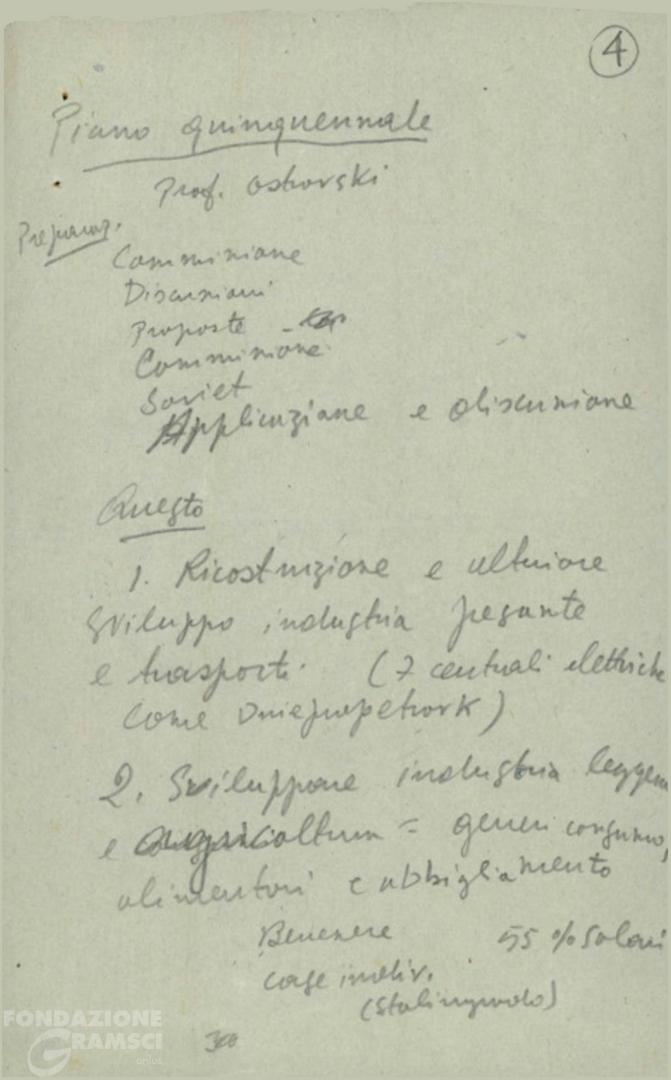 4
Piano quinquennale
Prof. Ostrovski
Preparaz.
Commissione
Discussioni
Proposte -
Commissione
Soviet
Applicazione e discussione
Questo
1. Ricostruzione e ulteriore
sviluppo industria pesante
e trasporti. (7 centrali elettriche
come Dniepropetrovsk)
2. Sviluppare industria leggera
e agricoltura = generi consumo,
alimentari e abbigliamento
Benessere 55% salari
case indiv.
(Stalingrado)
FONDAZIONE
GRAMSCI
onlus